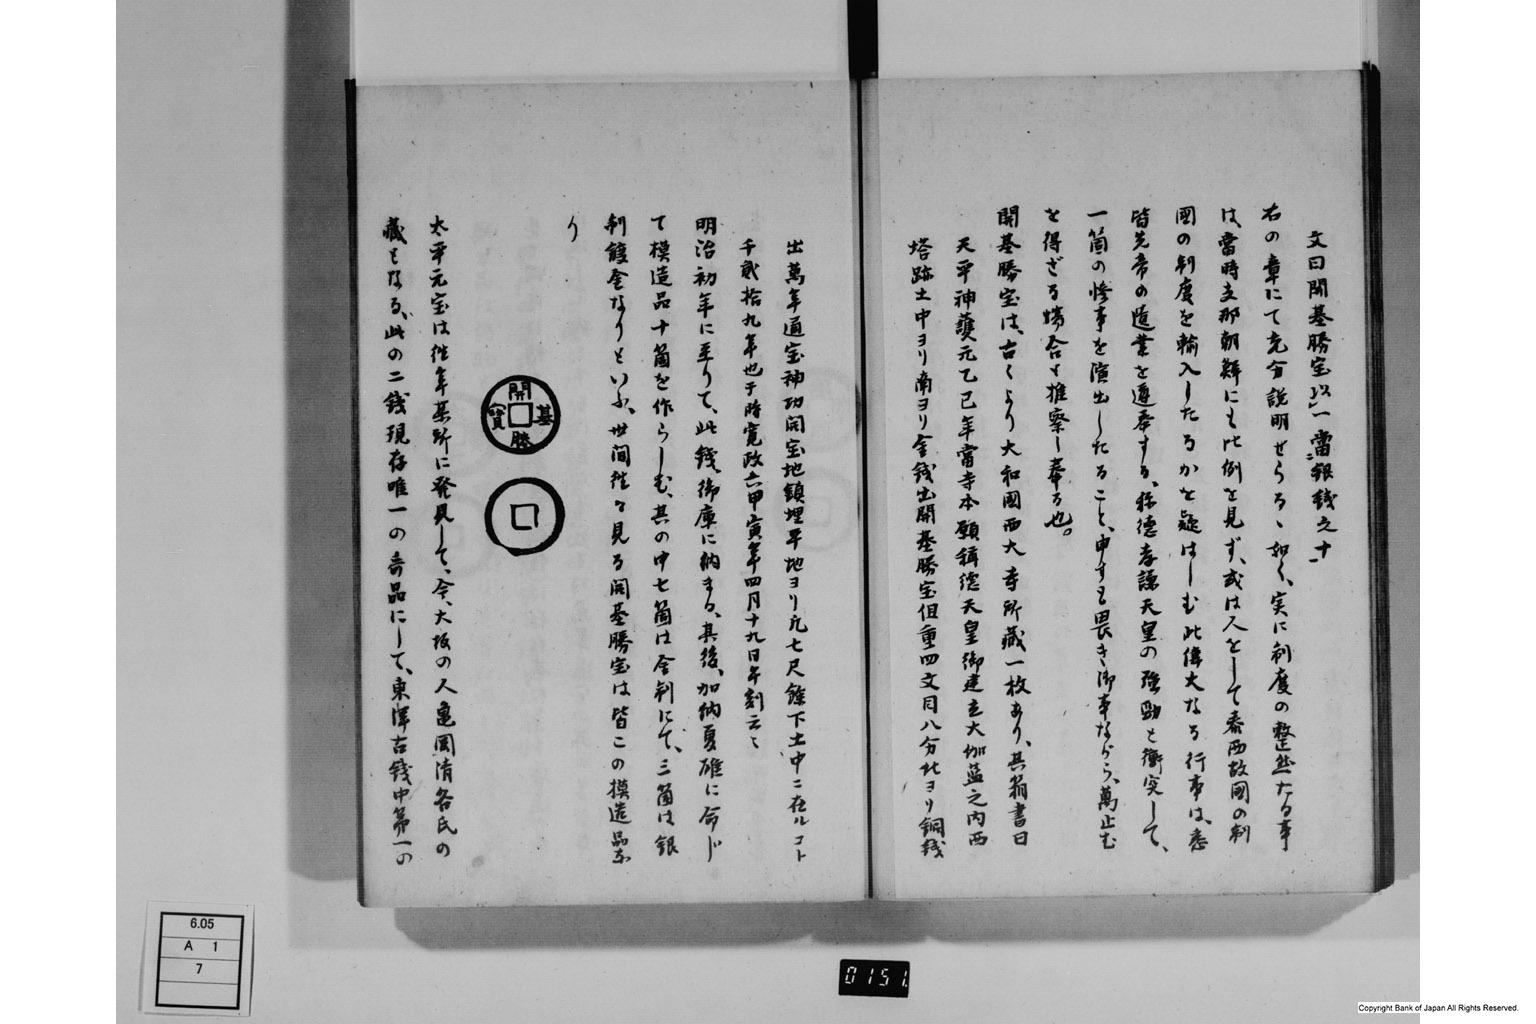 文曰開基勝宝以一當銀錢之十
右の章にて充分説明せらるゝ如く、実に制度の整然たる事
は、當時支那朝鮮にも比例を見ず、或は人をして泰西故國の制
國の制度を輸入したるかを疑はしむ此偉大なる行事は、悉
皆先帝の遺業を遵奉する、称徳孝謙天皇の強勁と衝突して、
一箇の惨事を演出したること、申すも畏き御事ながら、萬止む
を得ざる場合と推察し奉る也。
開基勝宝は、古くより大和國西大寺所藏一枚あり、其箱書曰
天平神護元乙巳年當寺本願稱德天皇御建立大伽藍之内西
塔跡土中ヨリ南ヨリ金錢出開基勝宝但重四文目八分北ヨリ銅錢
出萬年通宝神功開宝地鎮埋平地ヨリ凡七尺餘下土中ニ在ルコト
千貮拾九年也于時寛政六甲寅年四月十九日午刻云々
明治初年に至りて、此錢、御庫に納まる、其後、加納夏雄に命じ
て模造品十箇を作らしむ、其の中七箇は金製にて、三箇は銀
製鍍金なりといふ、世間往々見る開基勝宝は皆この模造品な
り
開基勝寳
太平元宝は往年某所に発見して、今、大坂の人亀岡清谷氏の
藏となる、此の二錢現存唯一の奇品にして、東洋古錢中第一の
6.05
A 1
7
0151.
Copyright Bank of Japan All Rights Reserved.